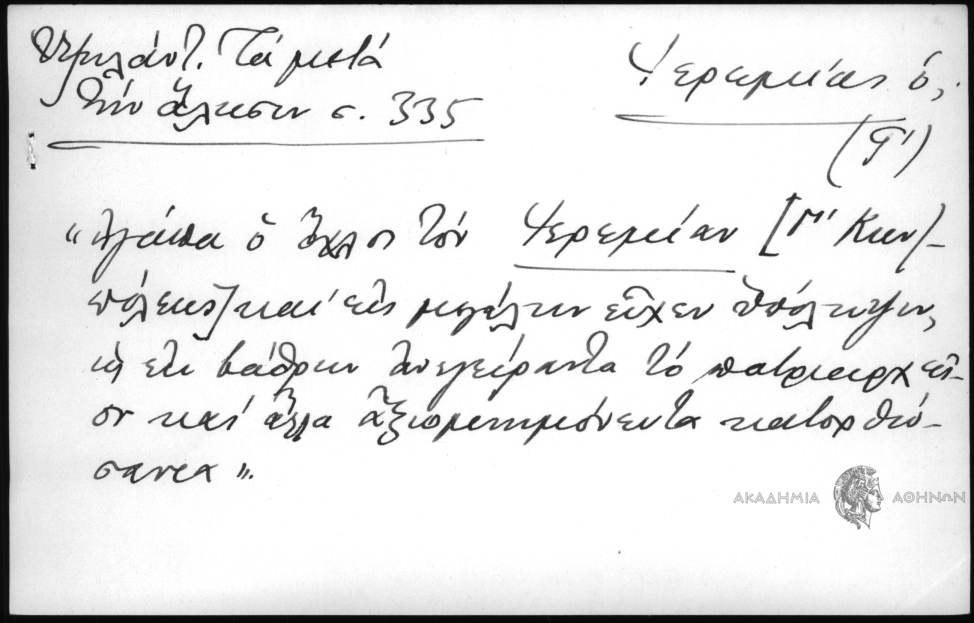 Ὑψηλάντ. Τά μετά
τήν ἅλωσιν σ. 335
Ἱερεμίας ὁ,
(Γ')
"ἠγάπα ὁ ὄχλος τόν Ἱερεμίαν [Γ' Κων/-
πόλεως] καί εἰς μεγάλην εἶχεν ὑπόληψιν,
ὡς ἐκ βάθρων ἀνεγείραντα τό πατριαρχεῖ-
ον καί ἄλλα ἀξιομνημόνευτα κατορθώ-
σαντα".
ΑΚΑΔΗΜΙΑ ΑΘΗΝΩΝ